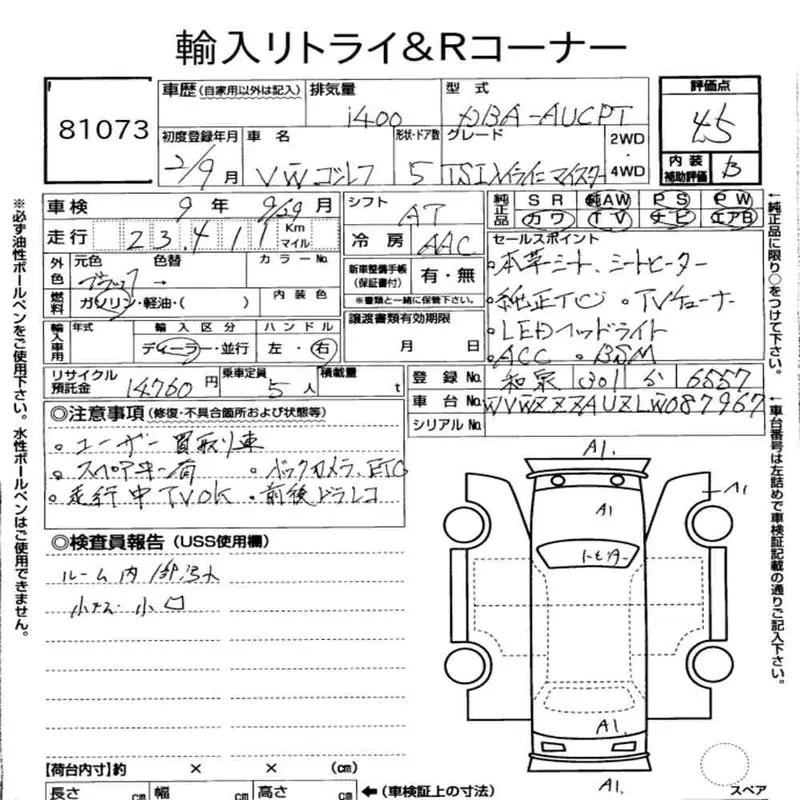 輸入リトライ&Rコーナー
81073
車歴(自家用以外は記入) 排気量 1400 型式 DBA-AUCPT 評価点 4.5
初度登録年月 2/9月 車名 VWゴルフ 形状・ドア数 5 グレード TSI マイスター 2WD・4WD 内装補助評価 B
車検 9年 9/29月 シフト AT 純正品 SR 純AW PS PW
走行 23.411 Kmマイル 冷房 AAC カワ TV ナビ エアB
外色 元色 ブラック 色替 → カラーNo. 新車整備手帳(保証書付) 有・無 ※書類と一緒に保管下さい。 セールスポイント
燃料 ガソリン・軽油・( ) 内装色
輸入車用 年式 輸入区分 ディーラー・並行 ハンドル 左・右 譲渡書類有効期限 月 日
。本革シート、シートヒーター
。純正 。TVチューナー
。LEDヘッドライト
。ACC 。BSM
リサイクル預託金 14760円 乗車定員 5人 積載量 t 登録No. 和泉 301 6557
車台No. WVWZZZAUZLW087967
シリアルNo.
◎注意事項(修復・不具合個所および状態等)
。ユーザー買取り車
。スペアキー有 。バックカメラ、ETC
。走行中TVOK 。前後ドラレコ
◎検査員報告(USS使用欄)
ルーム内
小キズ 小凹
A1.
A1
A1
トビリペアー
A1.
A1.
【荷台内寸】約 × × (cm)
長さ cm 幅 cm 高さ cm ←(車検証上の寸法)
スペア
※必ず油性ボールペンをご使用下さい。水性ボールペンはご使用できません。
←純正品に限り○をつけて下さい。
←車台番号は左詰めで車検証記載の通りご記入下さい。